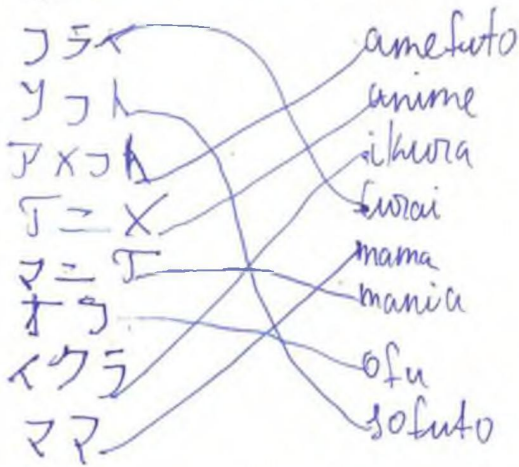 フライ
ソフト
アメフト
アニメ
マニア
オフ
イクラ
ママ
amefuto
anime
ikura
furai
mama
mania
ofu
sofuto